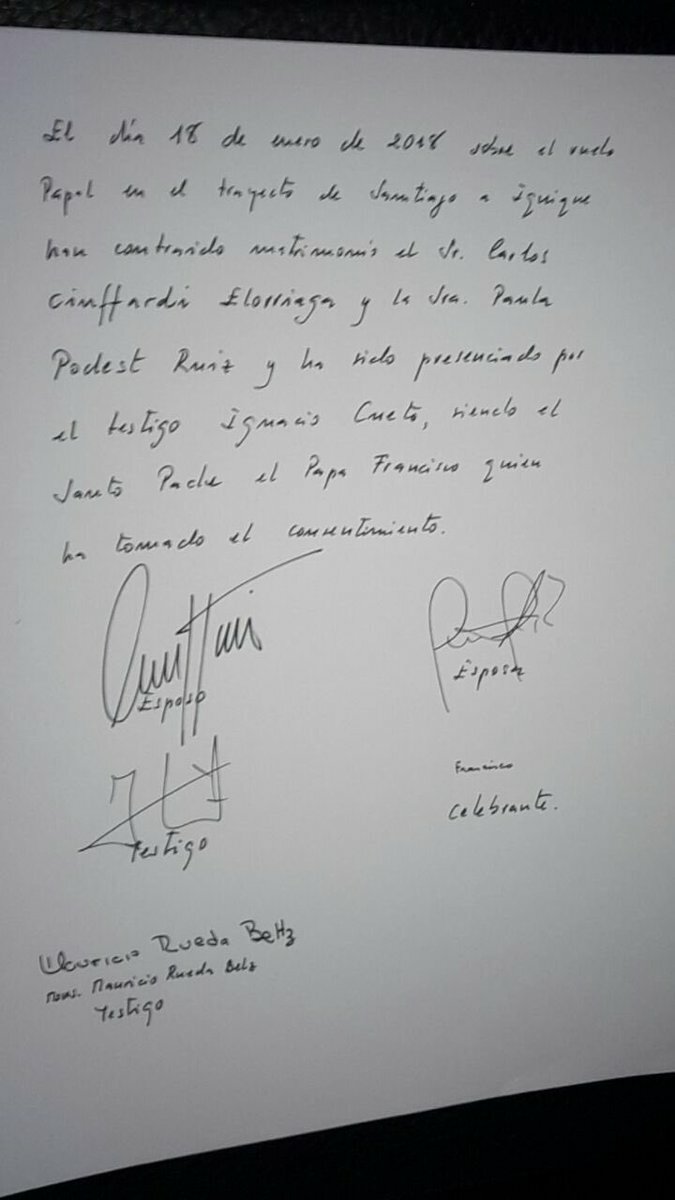 El día 18 de enero de 2018 sobre el vuelo
Papal en el trayecto de Santiago a Iquique
han contraido matrimonio el Sr. Carlos
Ciuffardi Elorriaga y la Sra. Paula
Podest Ruiz y ha sido presenciado por
el testigo Ignacio Cueto, siendo el
Santo Padre el Papa Francisco quien
ha tomado el consentimiento.
Esposo
Esposa
Francisco
Testigo
Celebrante.
Mauricio Rueda Beltz
Mons. Mauricio Rueda Belz
Testigo